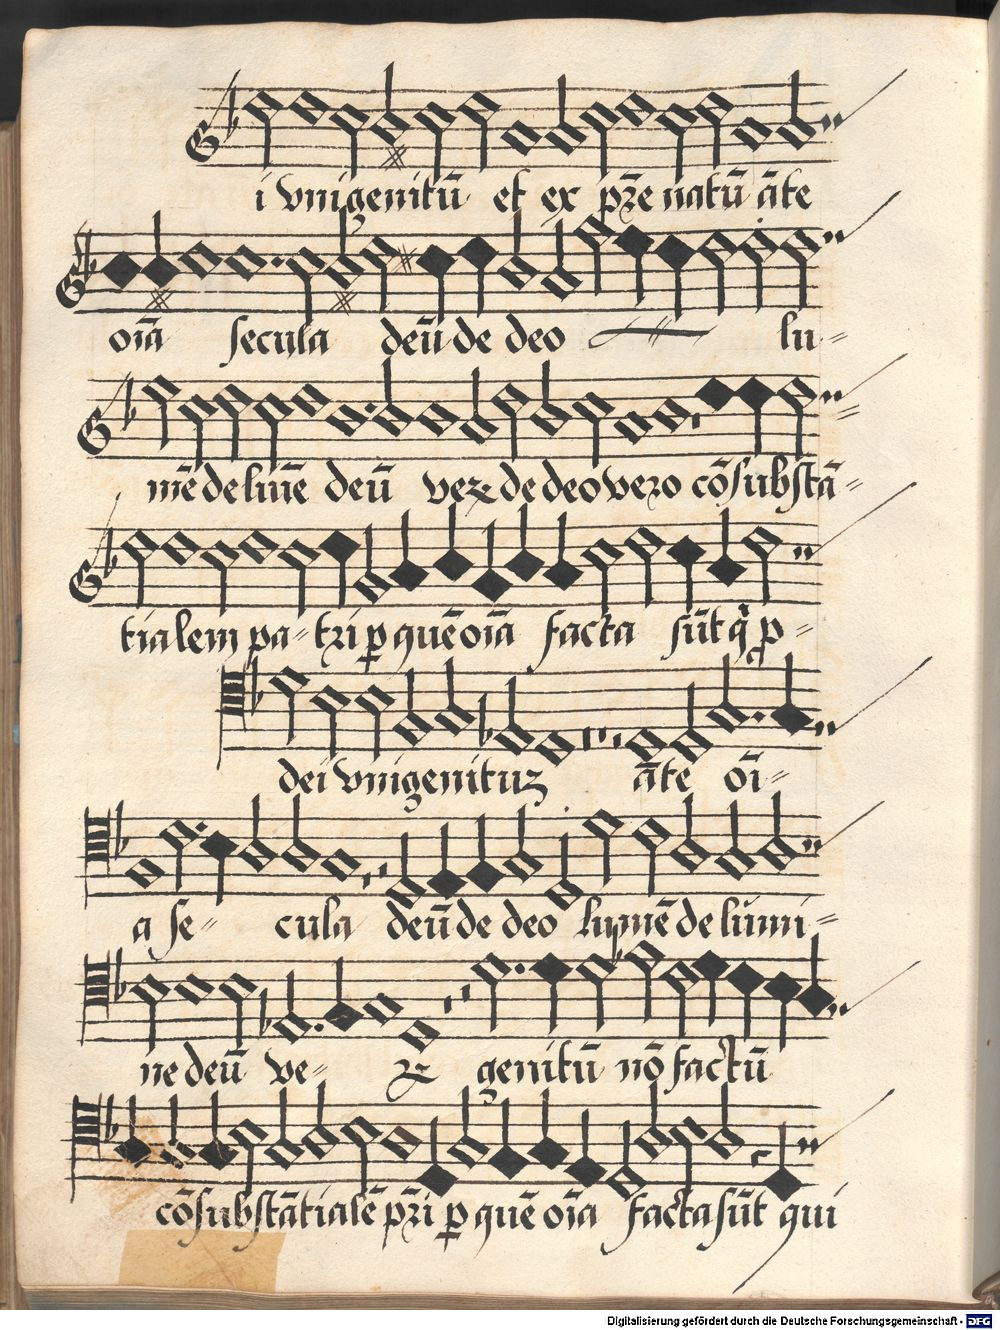 i vnigenitū et ex pr̄e natū āte
oīa secula deū de deo lu-
mē de lumīe deū ver de deo vero cōsubstā-
tialem pa-tri p quē oīa facta sūt q p-
dei vnigenituz āte oī-
a se- cula deū de deo lumē de lumi-
ne deū ve- r genitū nō factū
cōsubstātialē pr̄i p quē oīa facta sūt qui
Digitalisierung gefördert durch die Deutsche Forschungsgemeinschaft - DFG